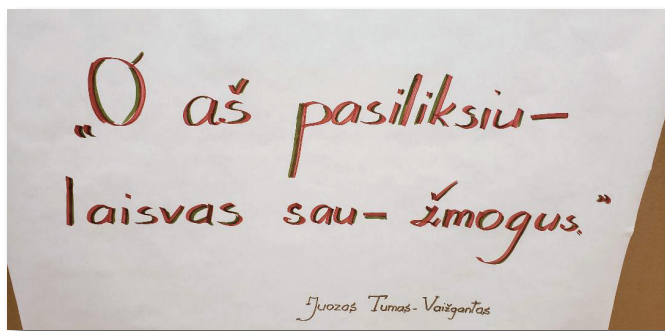 „O aš pasiliksiu–
laisvas sau– žmogus.“
Juozas Tumas-Vaižgantas